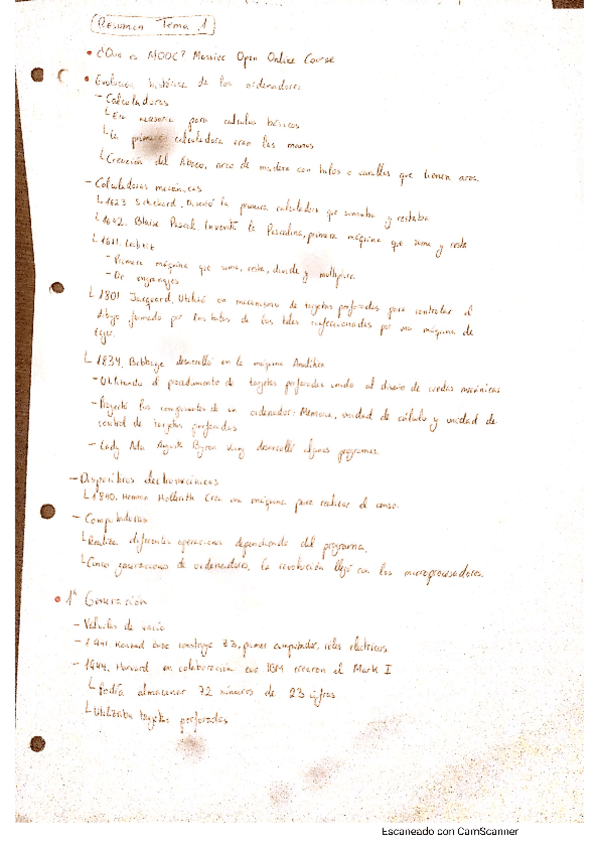 Resumen Tema 1
• ¿Que es MOOC? Massive Open Online Course
• Evolución histórica de los ordenadores
- Calculadoras
↳ Era necesaria para calculos básicos
↳ La primera calculadora eran las manos
↳ Creación del Abaco, arco de madera con hilos o varillas que tienen aros.
- Calculadoras mecánicas
↳ 1623 Schickard, Diseñó la primera calculadora que sumaba y restaba
↳ 1642. Blaise Pascal, Inventó la Pascalina, primera máquina que suma y resta
↳ Leibniz
- Primera máquina que suma, resta, divide y multiplica
- De engranajes
↳ 1801 Jacquard, Utilizó un mecanismo de tarjetas perforadas para controlar el
dibujo formado por los hilos de las telas confeccionadas por una máquina de
tejer.
↳ 1834, Babbage desarrolló en la máquina Analítica
- Utilizando el procedimiento de tarjetas perforadas unido al diseño de ruedas mecánicas
- Proyectó los componentes de un ordenador: Memoria, unidad de cálculo y unidad de
control de tarjetas perforadas
- Lady Ada Augusta Byron King desarrolló algunos programas
- Dispositivos electromecánicos
↳ Herman Hollerith Crea una máquina para realizar el censo.
- Computadoras
↳ Realiza diferentes operaciones dependiendo del programa.
↳ Cinco generaciones de ordenadores, la revolución llegó con los microprocesadores.
• 1ª Generación
- Válvulas de vacío
- 1941 Konrad construye Z3, primer computador, relés electricos
- 1944, Harvard en colaboración con IBM crearon el Mark I
↳ Podía almacenar 72 números de 23 cifras
↳ Utilizaba tarjetas perforadas
Escaneado con CamScanner